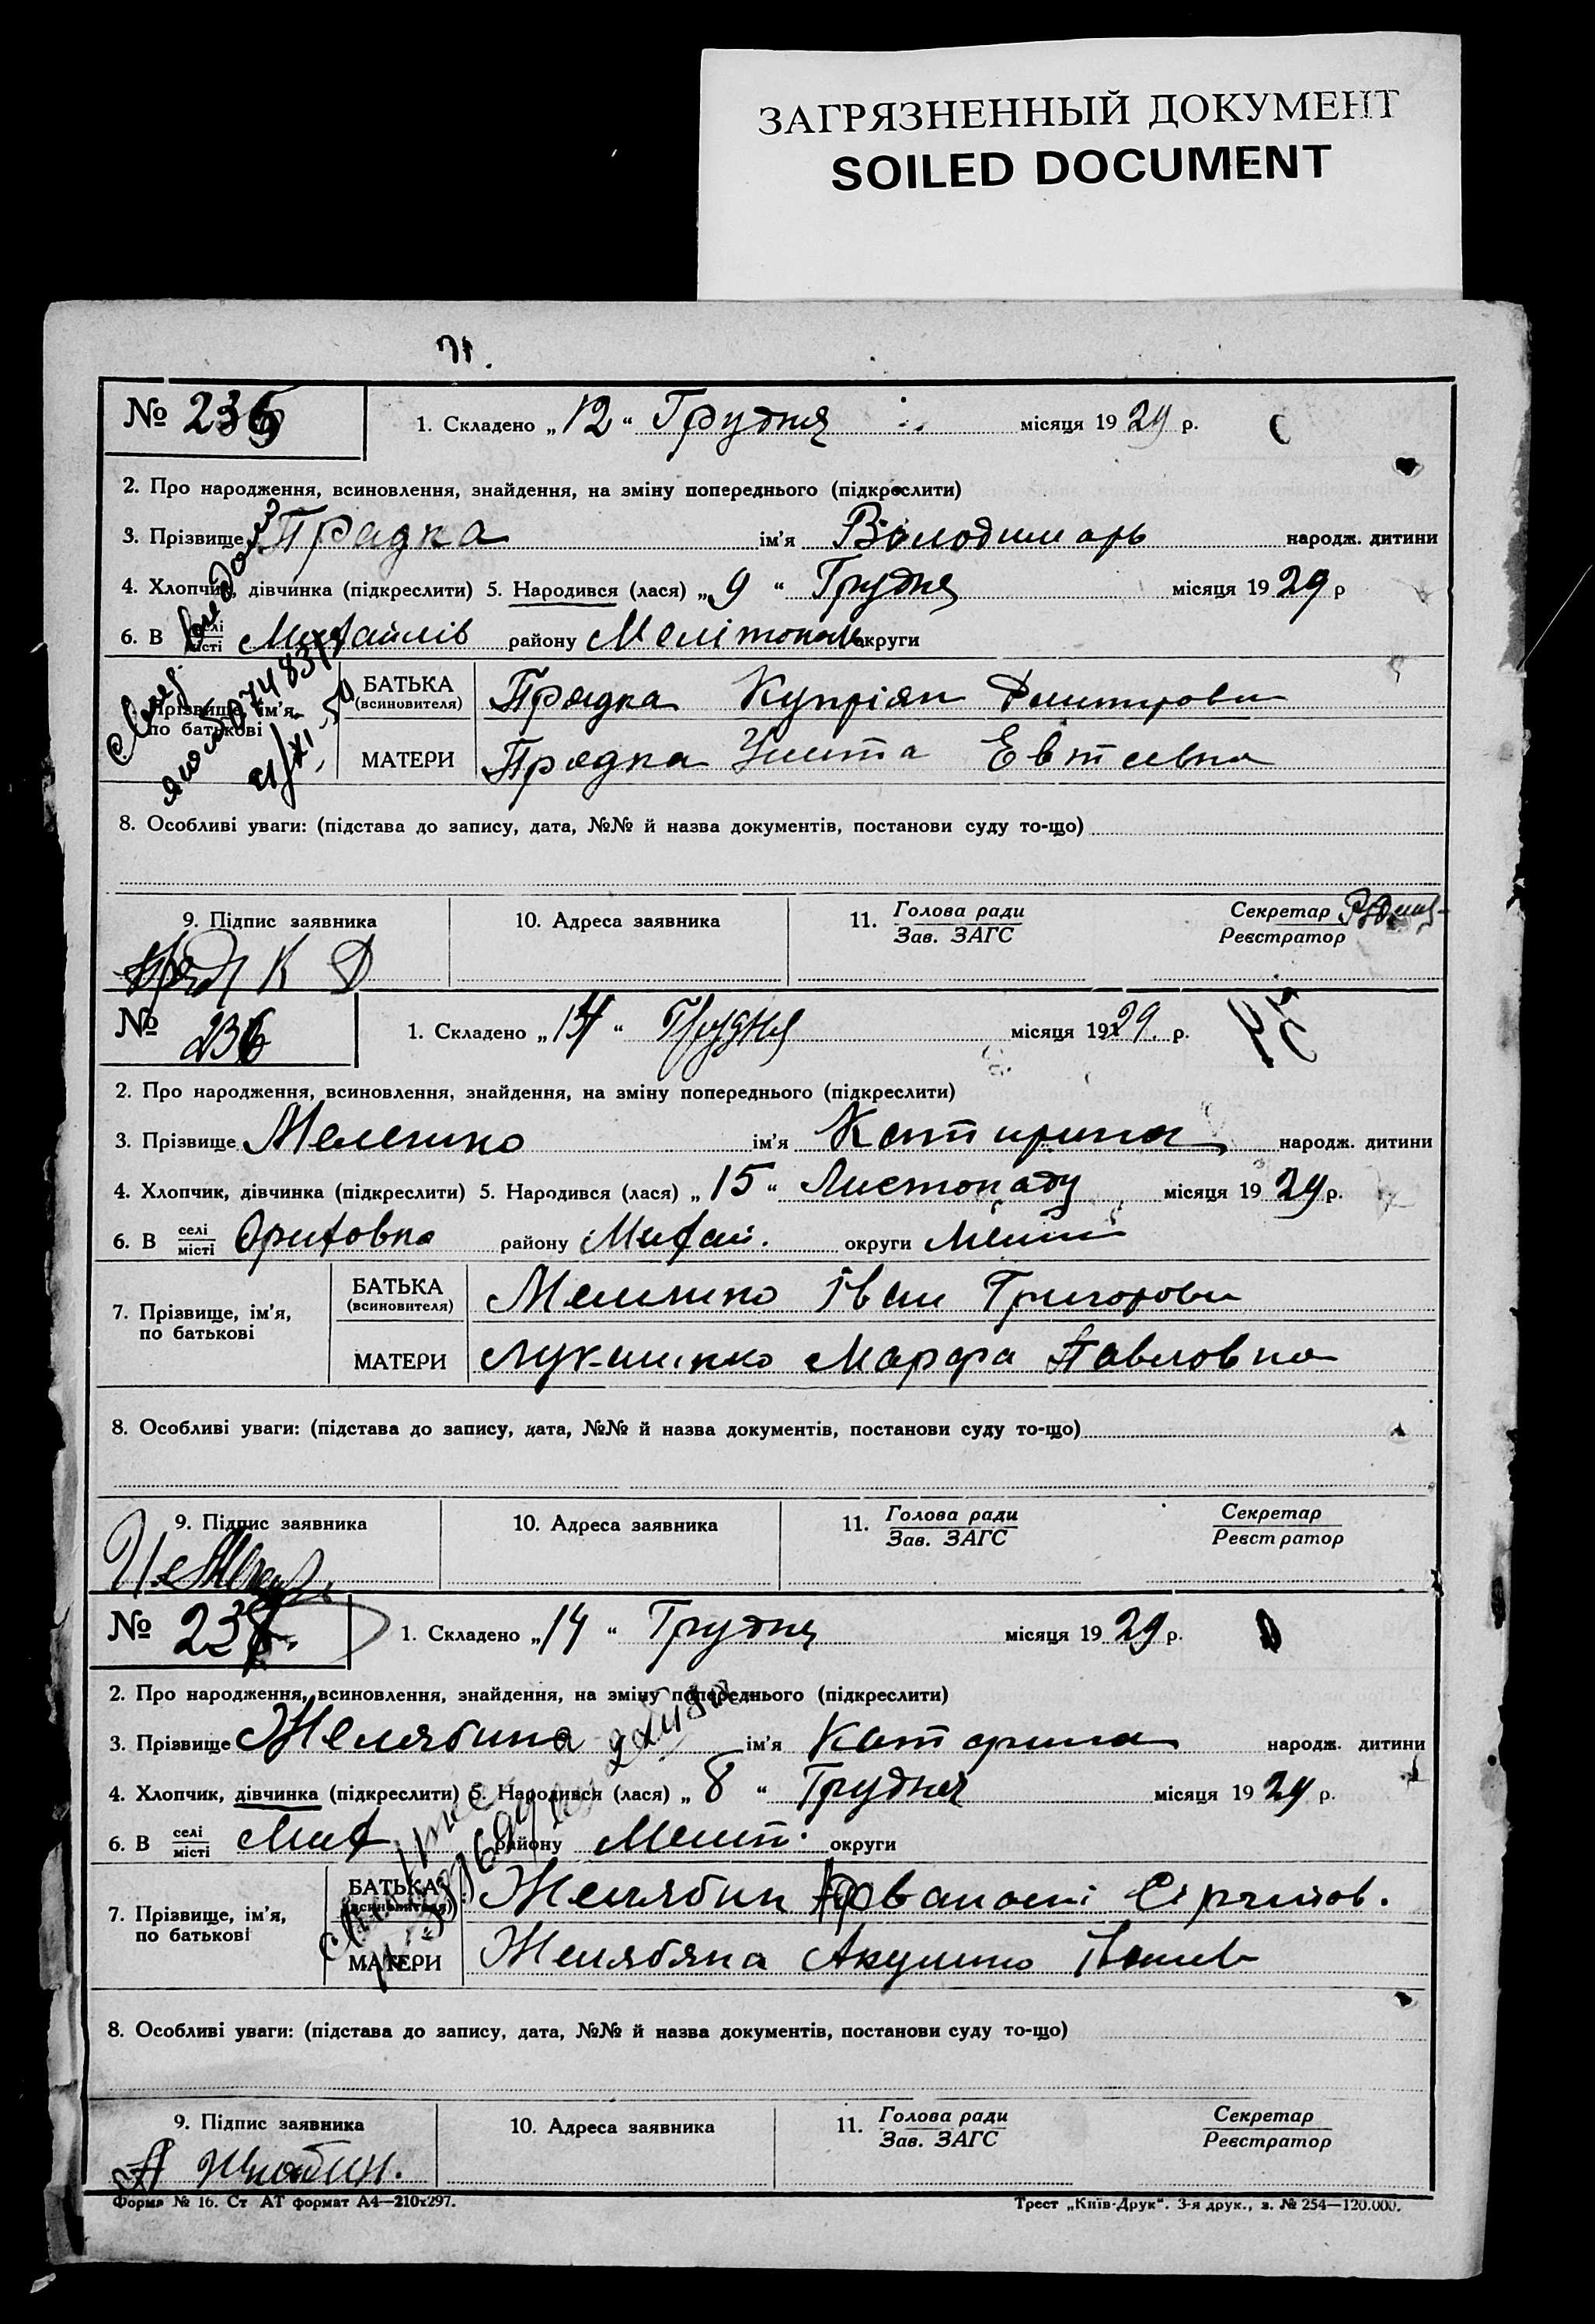 ЗАГРЯЗНЕННЫЙ ДОКУМЕНТ
SOILED DOCUMENT
№ 1. Складено „12“ Грудня місяця 1929 р.
2. Про народження, всиновлення, знайдення, на зміну попереднього (підкреслити)
3. Прізвище Прядка ім’я Володимарь народж. дитини
4. Хлопчик, дівчинка (підкреслити) 5. Народився (лася) „9“ Грудня місяця 1929 р
6. В селі місті Михайлів району Мелітополь округи
Прізвище, ім’я, по батькові
БАТЬКА (всиновителя) Прядка Купріян Дмитрови
МАТЕРИ Прядка Евтеевна
8. Особливі уваги: (підстава до запису, дата, №№ й назва документів, постанови суду то-що)
9. Підпис заявника 10. Адреса заявника 11. Голова ради Зав. ЗАГС Секретар Реєстратор
№ 236 1. Складено „14“ Грудня місяця 1929. р.
2. Про народження, всиновлення, знайдення, на зміну попереднього (підкреслити)
3. Прізвище Меленко ім’я Катирина народж. дитини
4. Хлопчик, дівчинка (підкреслити) 5. Народився (лася) „15“ Листопаду місяця 1929 р.
6. В селі місті Ориховка району Михай. округи Меліт
7. Прізвище, ім’я, по батькові
БАТЬКА (всиновителя) Іван Григорови
МАТЕРИ Марфа Павловна
8. Особливі уваги: (підстава до запису, дата, №№ й назва документів, постанови суду то-що)
9. Підпис заявника 10. Адреса заявника 11. Голова ради Зав. ЗАГС Секретар Реєстратор
№ 1. Складено „14“ Грудня місяця 1929 р.
2. Про народження, всиновлення, знайдення, на зміну попереднього (підкреслити)
3. Прізвище Желябина ім’я Катерина народж. дитини
4. Хлопчик, дівчинка (підкреслити) 5. Народився (лася) „8“ Грудня місяця 1929 р.
6. В селі місті Мих району Меліт. округи
7. Прізвище, ім’я, по батькові
БАТЬКА (всиновителя) Желябин
МАТЕРИ Желябяна Акулина
8. Особливі уваги: (підстава до запису, дата, №№ й назва документів, постанови суду то-що)
9. Підпис заявника 10. Адреса заявника 11. Голова ради Зав. ЗАГС Секретар Реєстратор
Форма № 16. Ст АТ формат А4—210х297. Трест „Київ-Друк“. 3-я друк., з. № 254—120.000.